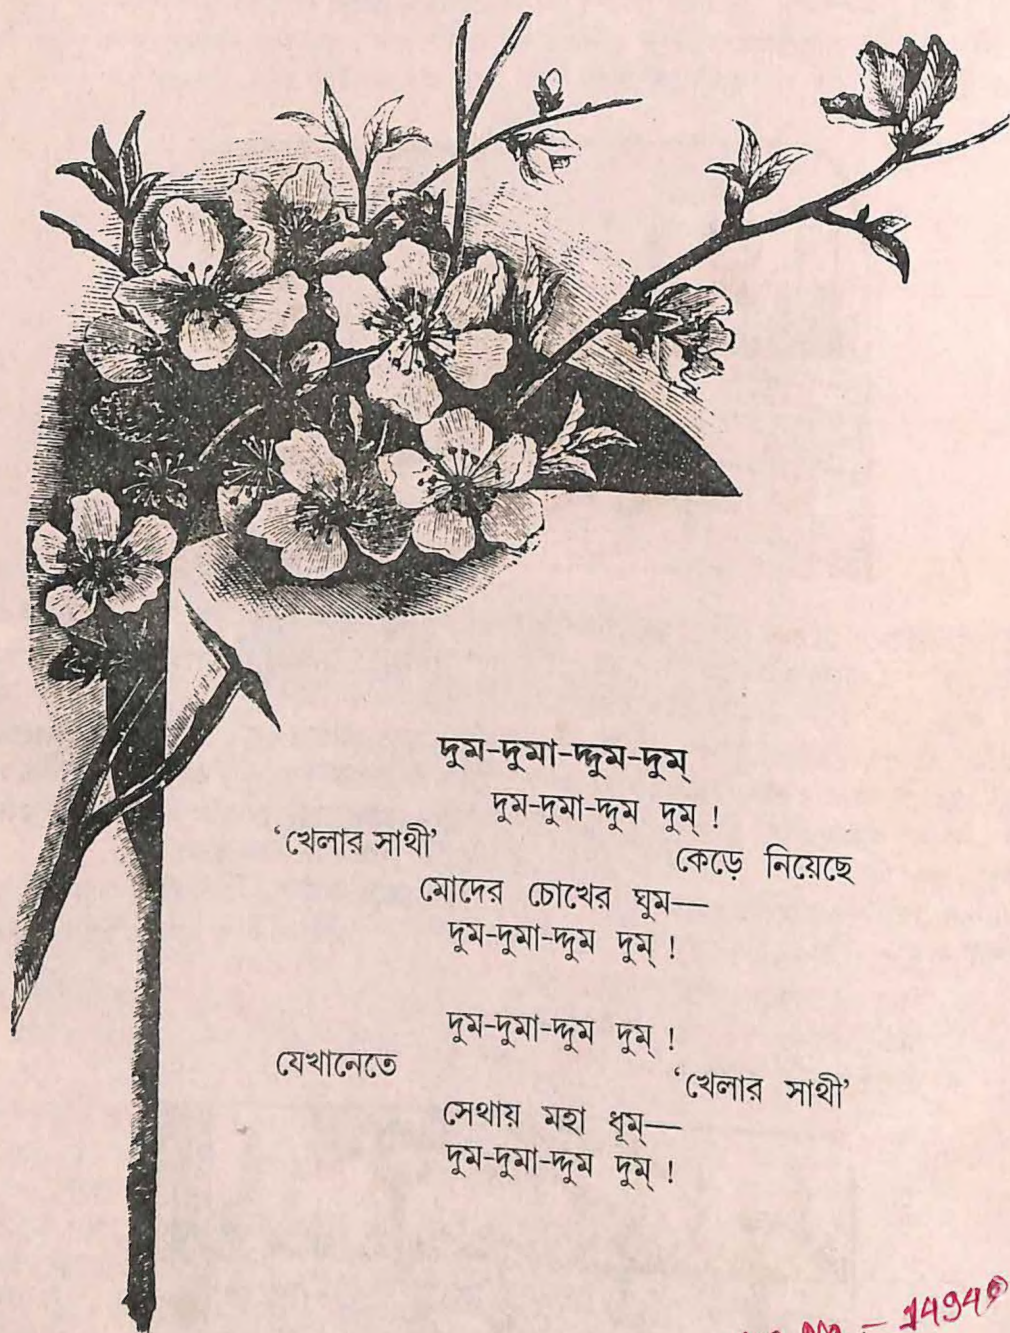 দুম-দুমা-দ্দুম-দুম্
দুম-দুমা-দ্দুম দুম্ !
‘খেলার সাথী’
কেড়ে নিয়েছে
মোদের চোখের ঘুম—
দুম-দুমা-দ্দুম দুম্ !
দুম-দুমা-দ্দুম দুম্ !
যেখানেতে
‘খেলার সাথী’
সেথায় মহা ধূম্—
দুম-দুমা-দ্দুম দুম্ !